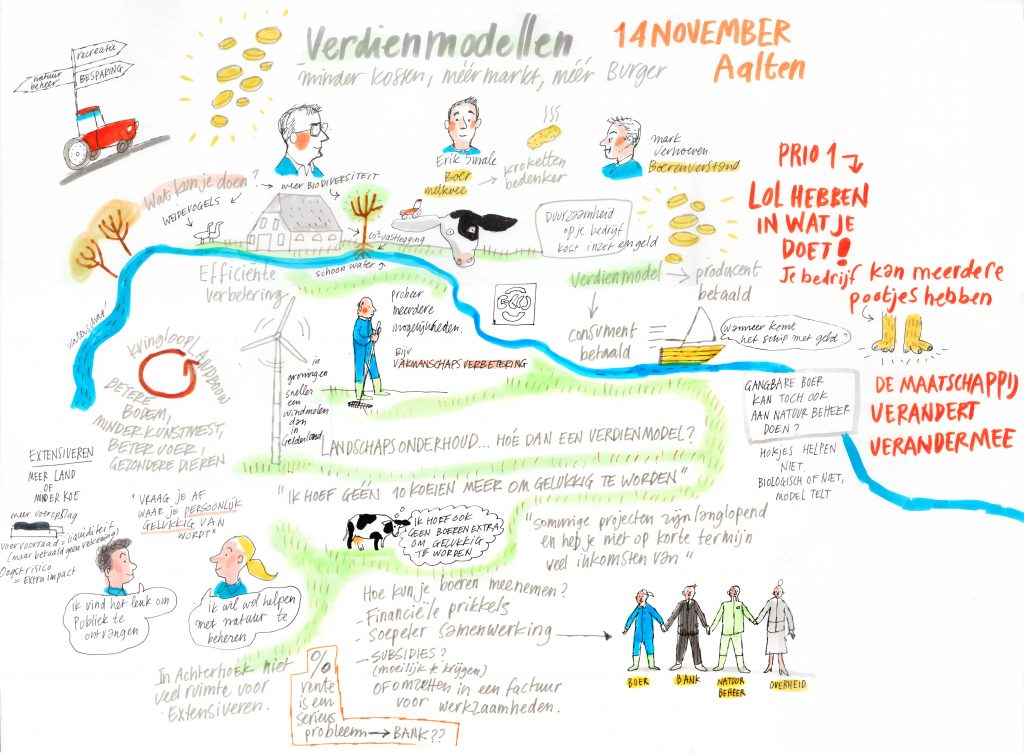 Verdienmodellen
minder kosten, méér markt, méér Burger
14 NOVEMBER
Aalten
recreatie
natuur
beheer
BESPARING
Erik Smale
Boer
melkvee
kroketten
bedenker
mark
verhoeven
Boerenverstand
PRIO 1
LOL HEBBEN
IN WAT JE
DOET!
Je bedrijf kan meerdere
pootjes hebben
Wat kun je doen?
meer BIODIVERSITEIT
WEIDEVOGELS
CO2 vastlegging
schoon water
Duurzaamheid
op je bedrijf
kost inzet en geld
Efficiënte
verbetering
waterschap
Verdienmodel
producent
betaald
consument
betaald
wanneer komt
het schip met geld?
Probeer
meerdere
mogelijkheden.
Bijv
VAKMANSCHAPSVERBETERING
in
groningen
sneller
een
windmolen
dan
in
Gelderland
Kringloop LANDBOUW
BETERE
BODEM,
MINDER KUNSTMEST,
BETER VOER,
GEZONDERE DIEREN
GANGBARE BOER
KAN TOCH OOK
AAN NATUUR BEHEER
DOEN?
HOKJES HELPEN
NIET.
BIOLOGISCH OF NIET,
MODEL TELT
DE MAATSCHAPPIJ
VERANDERT
VERANDER MEE
LANDSCHAPSONDERHOUD... HOÉ DAN EEN VERDIENMODEL?
"IK HOEF GÉÉN 10 KOEIEN MEER OM GELUKKIG TE WORDEN"
IK HOEF OOK
GEEN BOEREN EXTRA
OM GELUKKIG
TE WORDEN
"sommige projecten zijn langlopend
en heb je niet op korte termijn
veel inkomsten van"
EXTENSIVEREN
MEER LAND
OF
MINDER KOE
meer voeropslag
Voervoorraad = liquiditeit
(maar betaald geen rekening)
Oogst risico
= Extra impact
"VRAAG JE AF
WAAR JE PERSOONLIJK
GELUKKIG VAN
WORDT"
ik vind het leuk om
Publiek te
ontvangen
ik wil wel helpen
met natuur te
beheren
Hoe kun je boeren meenemen?
- Financiële prikkels
- Soepeler samenwerking
- SUBSIDIES?
(moeilijk te krijgen)
OF OMZETTEN in een factuur
voor werkzaamheden.
In Achterhoek niet
veel ruimte voor
Extensiveren.
%
rente
is een
serieus
probleem → BANK??
BOER
BANK
NATUUR
BEHEER
OVERHEID